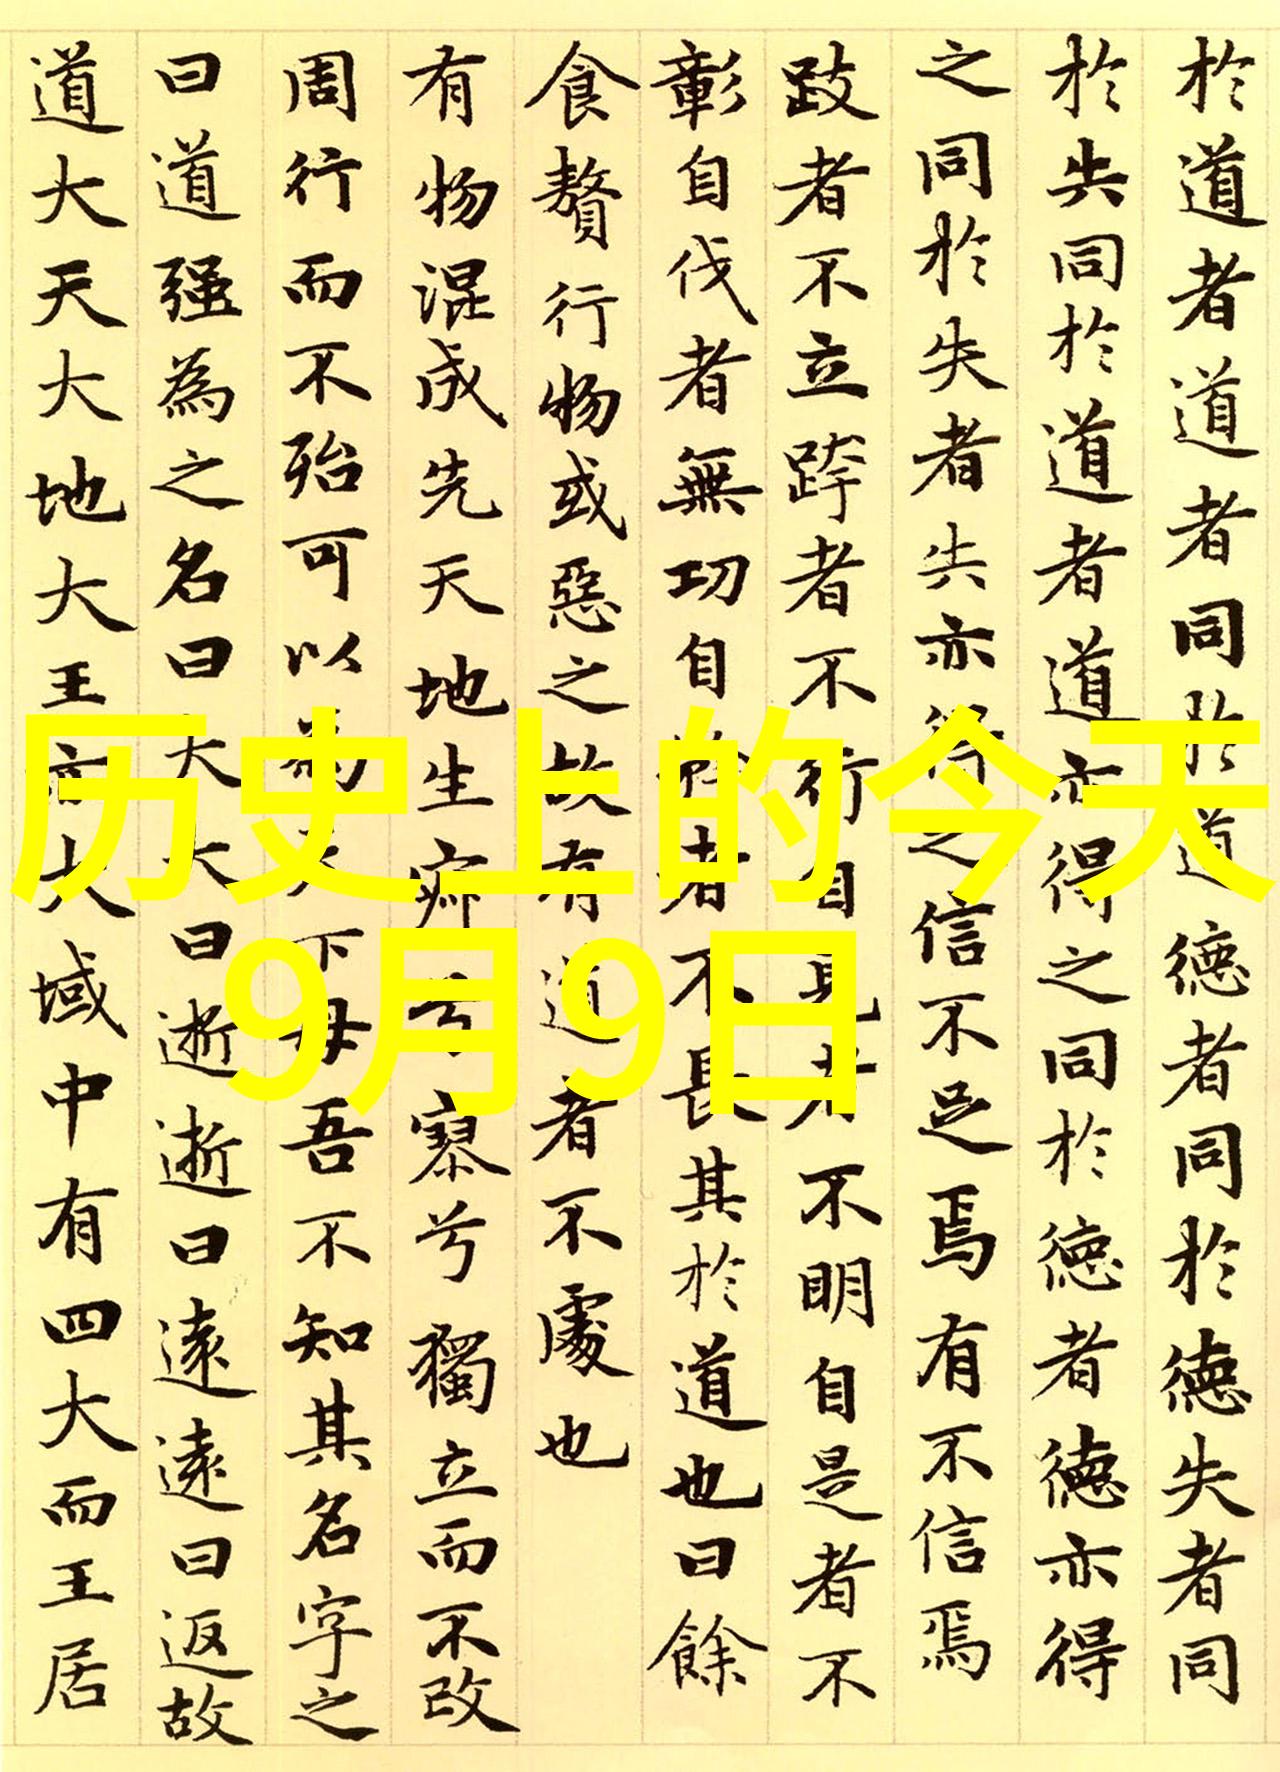 於道者道者同於道德者同於德失者同
於失同於道者道亦得之同於德者德亦得
之同於失者失亦得之信不足焉有不信焉
跂者不立跨者不行自見者不明自是者不
彰自伐者無功自矜者不長其於道也曰餘
食贅行物或惡之故有道者不處也
有物混成先天地生寂兮寥兮獨立而不改
周行而不殆可以為天下母吾不知其名字之
曰道强為之名曰大大曰逝逝曰遠遠曰返故
道大天大地大王亦大域中有四大而王居
历史上的今天
9月9日